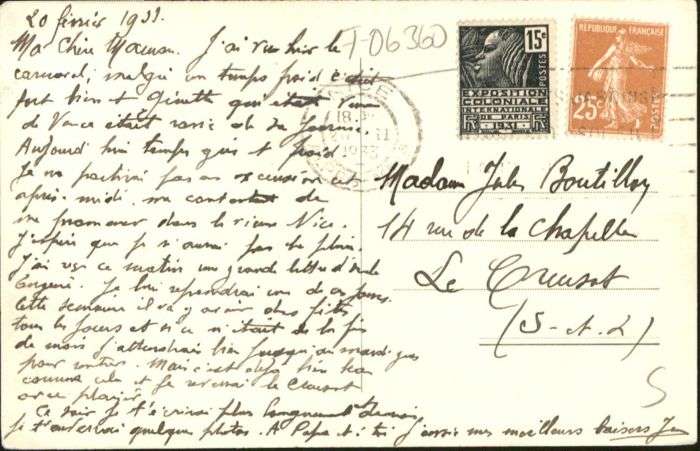 20 février 1933.
Ma chère Maman. J'ai vu hier le
carnaval; malgré un temps froid c'était
fort bien et Ginette qui était venue
de Vence était ravie de sa journée.
Aujourd'hui temps gris et froid
Je ne partirai pas en excursion cet
après-midi, me contentant de
me promener dans le vieux Nice.
J'espère que je n'aurai pas de pluie.
J'ai reçu ce matin une grande lettre d'oncle
Eugène. Je lui répondrai un de ces jours.
Cette semaine il va y avoir des fêtes
tous les jours et si ce n'était de la fin
de mois j'attendrais bien jusqu'au mardi gras
pour rentrer. Mais c'est déjà bien beau
comme cela et je reverrai le Creusot
avec plaisir.
Ce soir je t'écrirai plus longuement
je t'enverrai quelques photos. A Papa et à toi j'envoie mes meilleurs baisers
T-06360
15c
POSTES
EXPOSITION
COLONIALE
INTERNATIONALE
DE PARIS
1931
REPUBLIQUE FRANÇAISE
25c
POSTES
NICE
18
1933
Madame Jules Boutilloy
14 rue de la Chapelle
Le Creusot
(S-et-L)
5